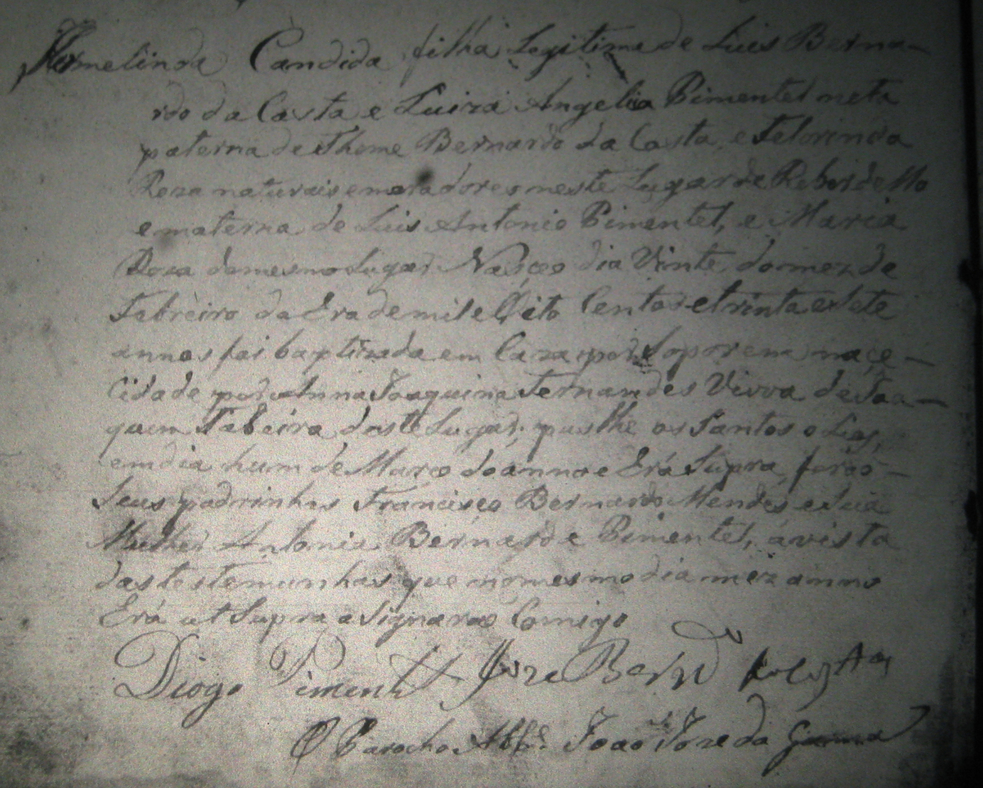 Hermelinda Candida filha Legitima de Luis Berna-
rdo da Costa e Luiza Angelia Pimentel neta
paterna de Thome Bernardo da Costa, e Felorinda
Roza naturais e moradores neste Lugar de
e materna de Luis Antonio Pimentel, e Maria
Roza do mesmo Lugar Nasceo dia Vinte do mez de
Febreiro da Era de mil e Oito Centos e trinta e sete
annos foi baptizada em Caza por
Cidade por Anna Joaquina Fernandes Viuva de Joa-
quim deste Lugar, pus lhe os Santos Olios,
em dia hum de Março do anno e Erá Supra, forão
Seus padrinhos Francisco Bernardo Mendes e Sua
Mulher Antonia Bernarde Pimentel, á vista
das testemunhas que no mesmo dia mez anno
Erá ut Supra a Signarão Comigo
Diogo Pimentel Joze Bernd
O Parocho Abbe João Joze da Gama